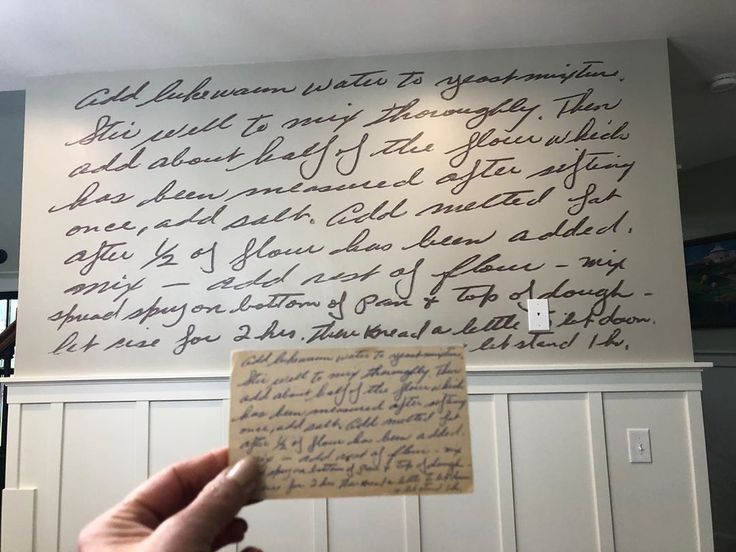 Add lukewarm water to yeast mixture.
Stir well to mix thoroughly. Then
add about half of the flour which
has been measured after sifting
once, add salt. Add melted fat
after 1/2 of flour has been added.
mix — add rest of flour - mix
spread spry on bottom of pan & top of dough -
let rise for 2 hrs. then knead a little let down.
let stand 1 hr.
Add lukewarm water to yeast mixture.
Stir well to mix thoroughly. Then
add about half of the flour which
has been measured after sifting
once, add salt. Add melted fat
after 1/2 of flour has been added.
mix — add rest of flour - mix
spry on bottom of pan & top of dough -
for 2 hrs. then knead a little to let down
& let stand 1 hr.